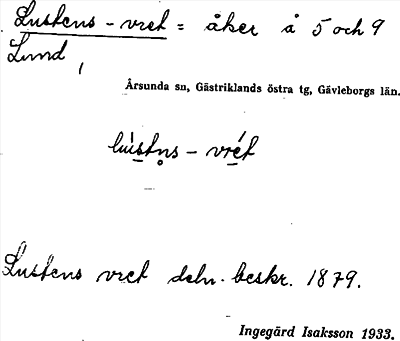 Lustens - vret = åker å 5 och 9
Lund,
Årsunda sn, Gästriklands östra tg, Gävleborgs län.
lùstn̥s - vrét
Lustens vret deln. beskr. 1879.
Ingegärd Isaksson 1933.